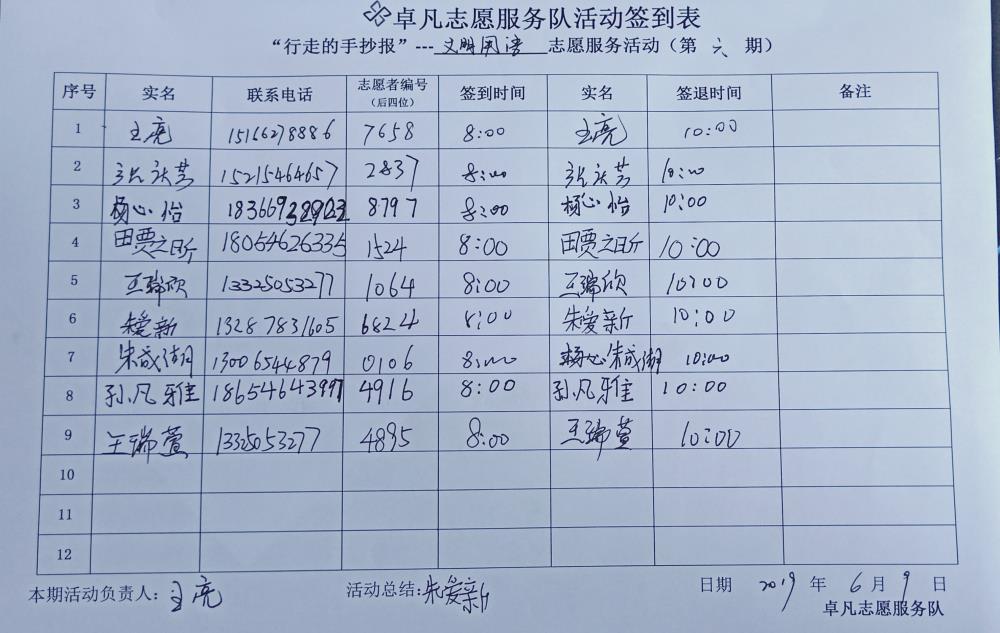 卓凡志愿服务队活动签到表
“行走的手抄报”---文明用语 志愿服务活动（第 六 期）
序号 实名 联系电话 志愿者编号（后四位） 签到时间 实名 签退时间 备注
1 王亮 15166278886 7658 8:00 王亮 10:00
2 2837 8:00 10:00
3 杨心怡 8797 8:00 杨心怡 10:00
4 田贾之昕 18054626335 1524 8:00 田贾之昕 10:00
5 王瑞欣 13325053277 1064 8:00 王瑞欣 10:00
6 朱爱新 13287831605 6824 8:00 朱爱新 10:00
7 朱成湖 13006544879 0106 8:00 朱成湖 10:00
8 孙凡雅 4916 8:00 孙凡雅 10:00
9 王瑞萱 13325053277 4895 8:00 王瑞萱 10:00
10
11
12
本期活动负责人：王亮 活动总结：朱爱新 日期 2019 年 6 月 9 日
卓凡志愿服务队